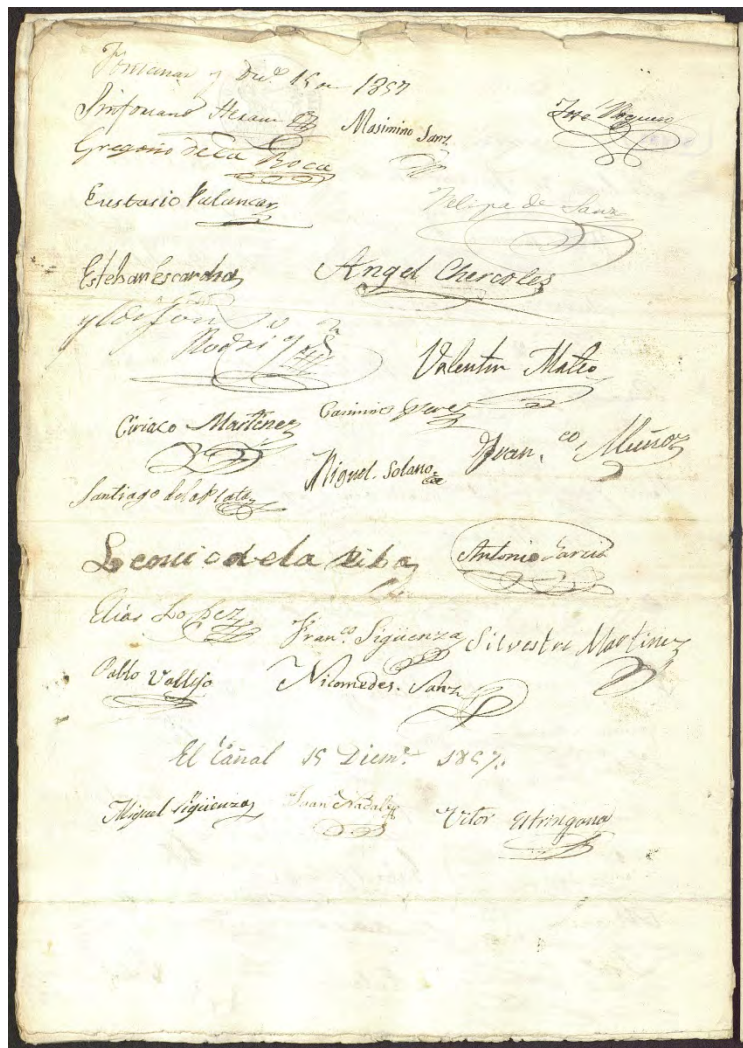 Fontanar y Dic.e 15 de 1857
Sinforiano
Masimino Sanz
José Noguera
Gregorio de la Roca
Eustasio Palancar
Felipa de Sanz
Esteban Escarcha
Angel Chercoles
Yldefonso
Rodrig.z
Valentin Mateo
Casimiro Perez
Ciriaco Martinez
Fran.co Muñoz
Miguel Solano
Santiago de la Plata
Leoncio de la Riba
Antonio Garcia
Elias Lopez
Fran.co Sigüenza
Silvestre Martinez
Pablo Vallejo
Nicomedes Sanz
El Cañal 15 Diem.e 1857.
Miguel Sigüenza
Juan Nadal
Vitor Estringana